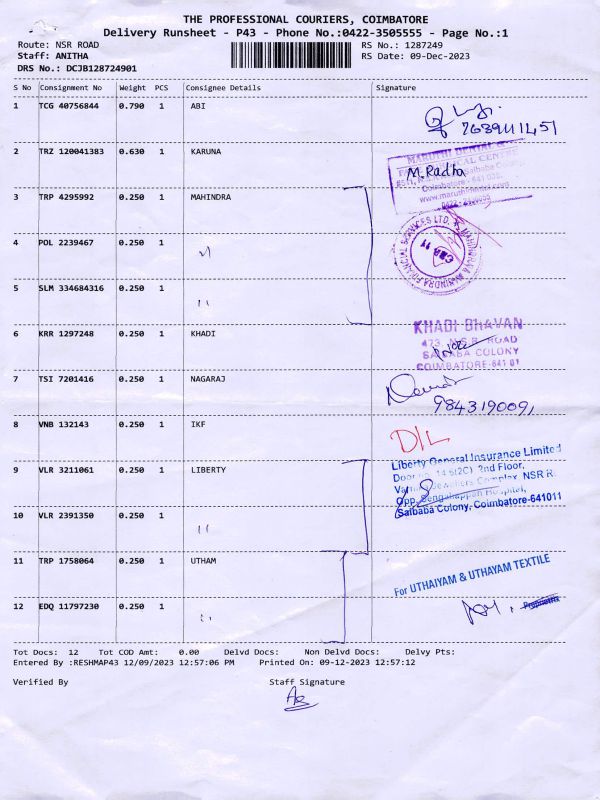 THE PROFESSIONAL COURIERS, COIMBATORE
Delivery Runsheet - P43 - Phone No.:0422-3505555 - Page No.:1
Route: NSR ROAD RS No.: 1287249
Staff: ANITHA RS Date: 09-Dec-2023
DRS No.: DCJB128724901
S No Consignment No Weight PCS Consignee Details Signature
1 TCG 40756844 0.790 1 ABI
2 TRZ 120041383 0.630 1 KARUNA
MARUTHI DENTAL
M. Radha
Coimbatore - 641
www.maruthidental.com
3 TRP 4295992 0.250 1 MAHINDRA
4 POL 2239467 0.250 1
MAHINDRA & MAHINDRA FINANCIAL SERVICES LTD.
5 SLM 334684316 0.250 1 "
6 KRR 1297248 0.250 1 KHADI
KHADI BHAVAN
473, N.S.R. ROAD
SAIBABA COLONY
COIMBATORE-641 01
7 TSI 7201416 0.250 1 NAGARAJ
9843190091
8 VNB 132143 0.250 1 IKF
D/L
9 VLR 3211061 0.250 1 LIBERTY
Liberty General Insurance Limited
Door no. 2nd Floor,
Jewellers Complex, NSR R
Opp. Hospital,
Saibaba Colony, Coimbatore-641011
10 VLR 2391350 0.250 1 "
11 TRP 1758064 0.250 1 UTHAM
For UTHAIYAM & UTHAYAM TEXTILE
12 EDQ 11797230 0.250 1 "
Proprietrix
Tot Docs: 12 Tot COD Amt: 0.00 Delvd Docs: Non Delvd Docs: Delvy Pts:
Entered By :RESHMAP43 12/09/2023 12:57:06 PM Printed On: 09-12-2023 12:57:12
Verified By Staff Signature